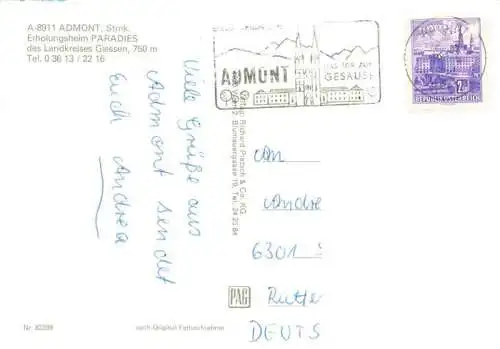 A-8911 ADMONT, Stmk.
Erholungsheim PARADIES
des Landkreises Giessen, 750 m
Tel. 0 36 13 / 22 16
Viele Grüße aus
Admont sendet
Euch Andrea
ADMONT
DAS TOR ZUM
GESÄUSE
Verlag: Richard Pietsch & Co. KG,
Blumauergasse 19, Tel. 24 25 84
An
Andre
6301
DEUTS
PAG
Nr. 82398
nach Original-Farbaufnahme